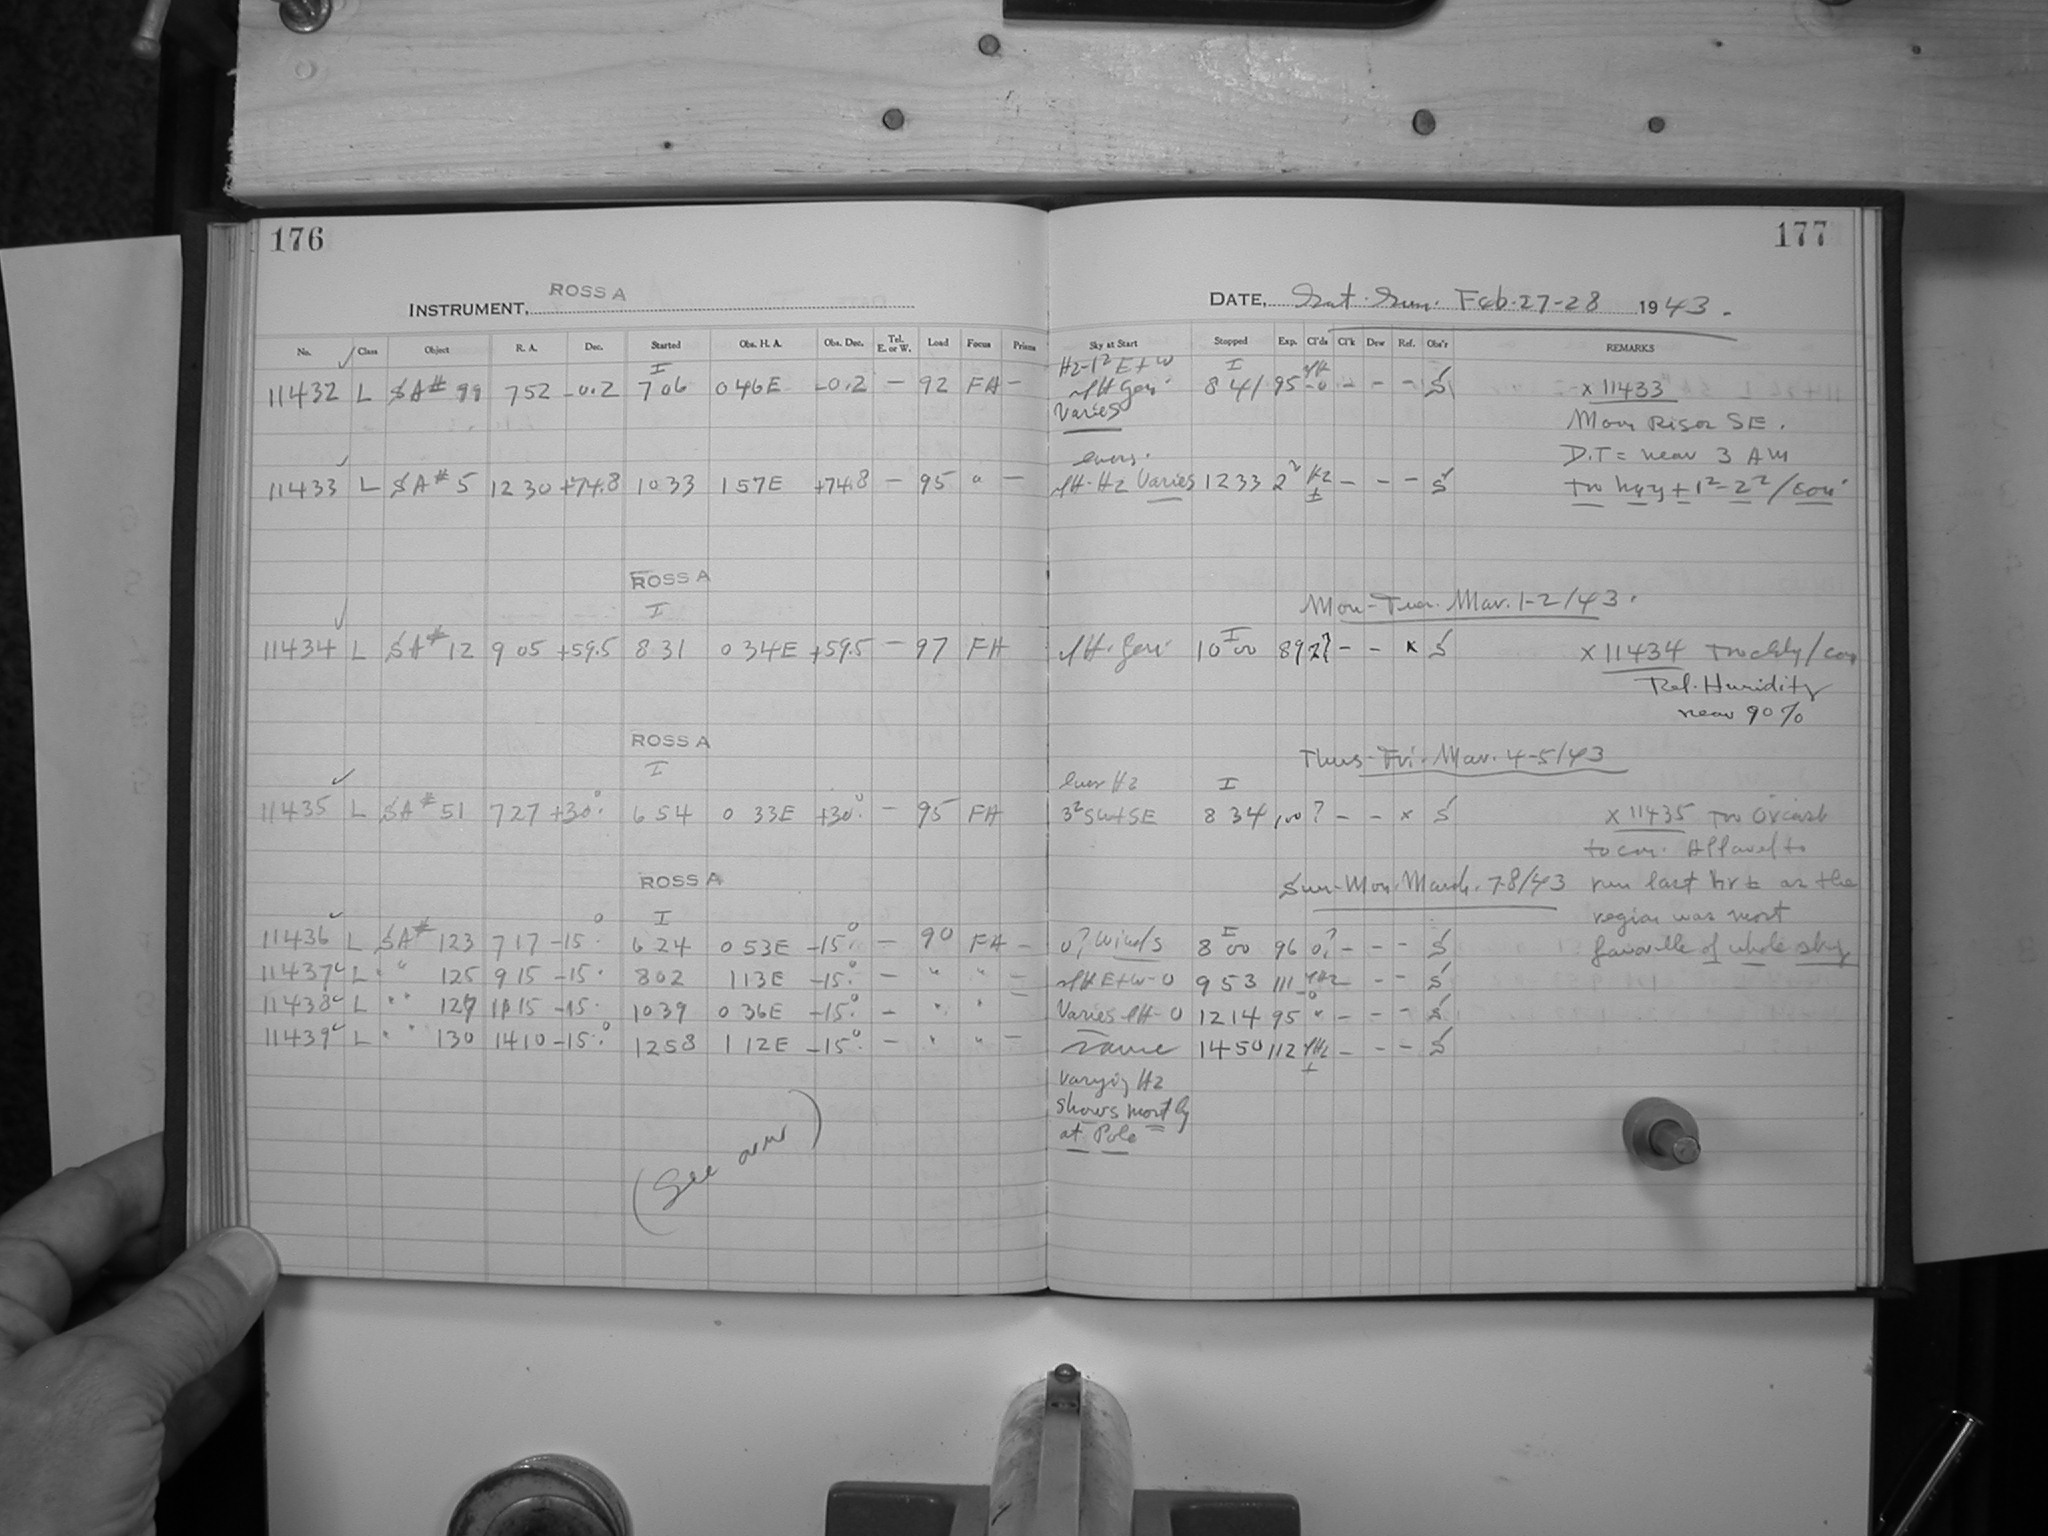 176
177
INSTRUMENT, ROSS A
DATE, Sat-Sun. Feb-27-28 1943.
No. Class Object R. A. Dec. Started Obs. H. A. Obs. Dec. Tel. E. or W. Load Focus Prism Sky at Start Stopped Exp. Cl'ds Cl'k Dew Ref. Obs'r REMARKS
I Hz-1² E+W I
11432 L SA# 99 752 -0.2 706 046E -0.2 — 92 FA — 841 95 - - - S x 11433
Varies Moon Rises SE.
D.T = near 3 AM
11433 L SA# 5 1230 +74.8 1033 157E +74.8 — 95 " — Varies 1233 2² - - - S
ROSS A
I Mon-Tues. Mar. 1-2/43.
11434 L SA# 12 905 +59.5 831 034E +59.5 — 97 FA I 1000 89 - - x S x 11434
Rel. Humidity
near 90%
ROSS A
I Thus-Fri. Mar. 4-5/43
Hz I
11435 L SA# 51 727 +30°. 654 033E +30°. — 95 FA 3² SW+SE 834 100 ? - - x S x 11435
ROSS A Sun-Mon. March. 7-8/43 run last hr ± as the
I I region was most
11436 L SA# 123 717 -15°. 624 053E -15°. — 90 FA — 0? Winds 800 96 0? - - - S of whole sky
11437 L " " 125 915 -15. 802 113E -15°. — " " — 953 111 - - - S
11438 L " " 127 1115 -15. 1039 036E -15°. — " " Varies 1214 95 " - - - S
11439 L " " 130 1410 -15°. 1258 112E -15°. — " " — Same 1450 112 - - - S
Varying Hz
shows mostly
at Pole
(See over)